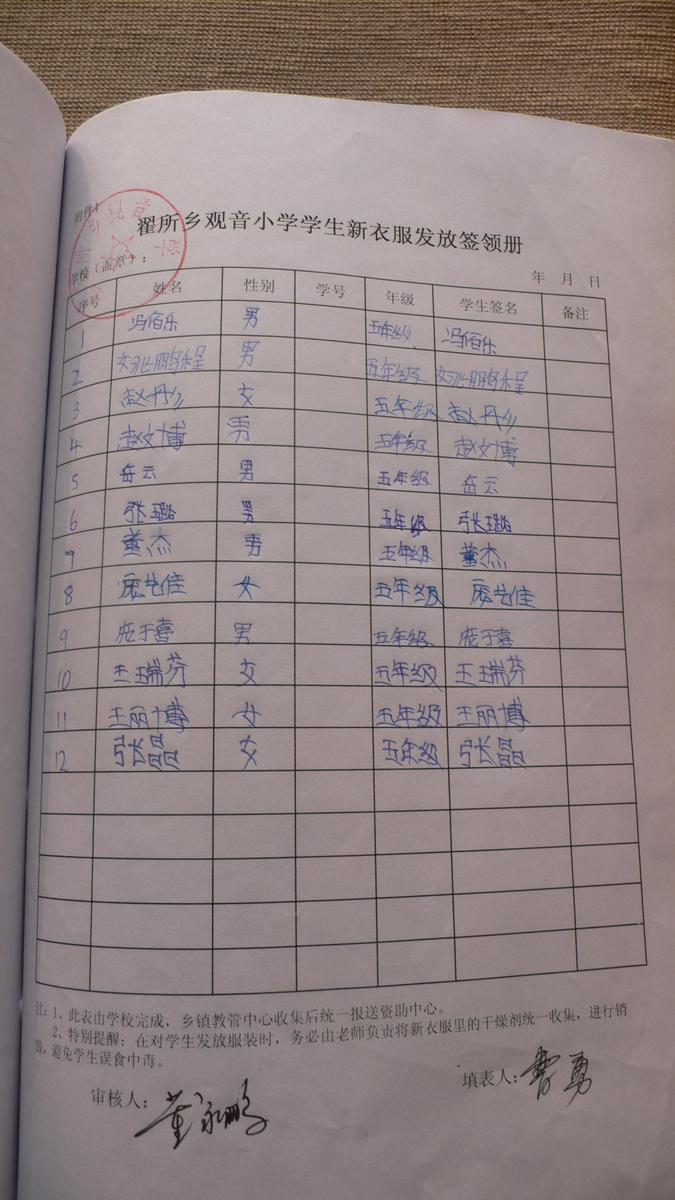 附件1
翟所乡观音小学学生新衣服发放签领册
学校（盖章）：
年 月 日
序号 姓名 性别 学号 年级 学生签名 备注
1 冯佰乐 男 五年级 冯佰乐
2 鹏程 男 五年级 鹏程
3 赵丹 女 五年级 赵丹
4 赵文博 男 五年级 赵文博
5 岳云 男 五年级 岳云
6 张璐 男 五年级 张璐
7 董杰 男 五年级 董杰
8 庞艺佳 女 五年级 庞艺佳
9 庞于喜 男 五年级 庞于喜
10 王瑞芬 女 五年级 王瑞芬
11 王丽博 女 五年级 王丽博
12 张晶 女 五年级 张晶
注：1、此表由学校完成，乡镇教管中心收集后统一报送资助中心。
2、特别提醒：在对学生发放服装时，务必由老师负责将新衣服里的干燥剂统一收集，进行销
毁，避免学生误食中毒。
审核人：董永鹏
填表人：曹勇